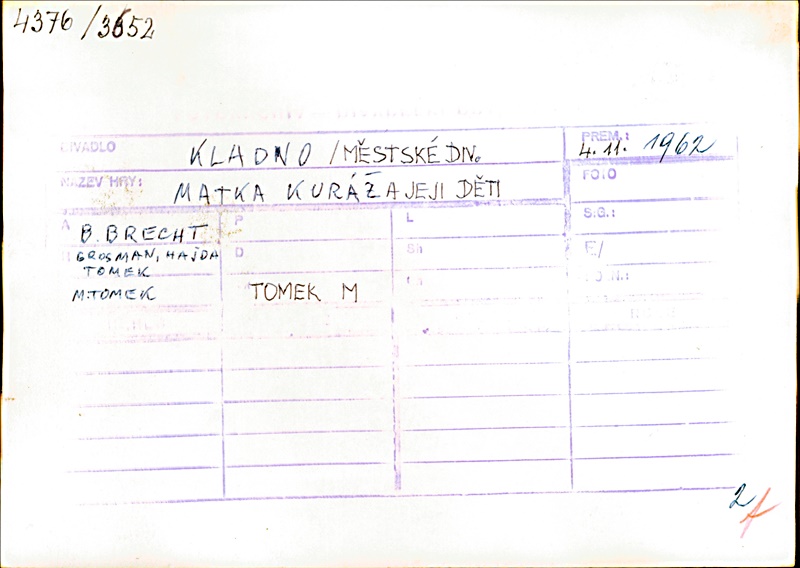 4376/3652
DIVADLO KLADNO / MĚSTSKÉ DN.
PREM.: 4.11. 1962
NÁZEV HRY: MATKA KURÁŽ A JEJI DĚTI
FOTO
A B. BRECHT P L S.G.:
GROSMAN, HAJDA D Sh E/
TOMEK
M. TOMEK TOMEK M
2